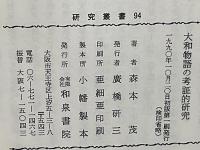 研究叢書 94
大和物語の考証的研究
一九九〇年一〇月一〇日初版第一刷発行
(検印省略)
著者 森本茂
発行者 廣橋研三
印刷所 亜細亜印刷
製本所 小幡製本
発行所 有限会社 和泉書院
大阪市天王寺区上汐五-三-八
〒五四三
電話 〇六-七七一-一四六七
振替 大阪七-一五〇四三